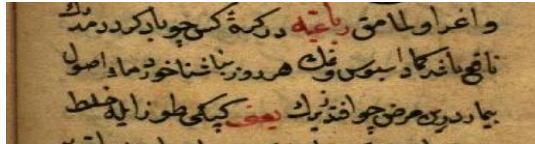 و اغراولما مق رباعیه در کمهٔ کس چو باد کرد در مدتك
نافع باشد کماد سبوس و نمك هر روز بناشتا خورد ماء اصول
بیمار درین مرض چو افتد زیرك یعنی کپکی طوز ایله خلط